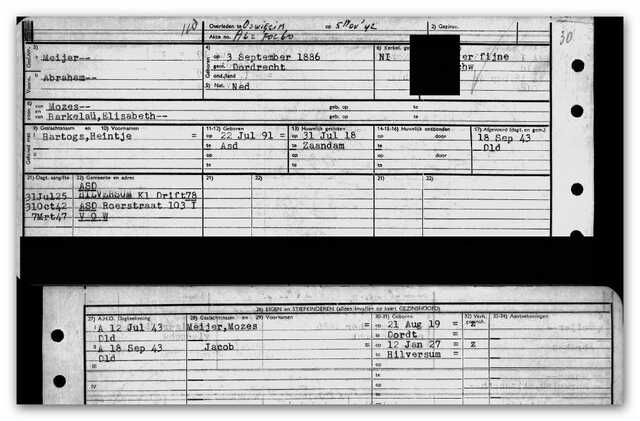 Overleden te Oswiecim op 5 Nov '42
Akte no.
2) Gezinsr.
30
3)
Meijer--
Abraham--
4)
op 3 September 1886
geb. Dordrecht
5) Nat. Ned
6) Kerkel. ge
NI
er fijne
hw
8)
van Mozes-- geb. op te
en van Barkelau,Elisabeth-- geb. op te
9) Geslachtsnaam en 10) Voornamen
Hartogs,Heintje
11-12) Geboren
op 22 Jul 91 =
te Asd
13) Huwelijk gesloten
op 31 Jul 18
te Zaandam
14-15-16) Huwelijk ontbonden
op door
te door
17) Afgevoerd (dagt. en gem.)
18 Sep 43
Dld
21) Dagt. aangifte 22) Gemeente en adres
21) 22)
21) 22)
ASD
31Jul25 HILVERSUM Kl Drift78
31Oct42 ASD Roerstraat 103 I
7Mrt47 V O W
26) EIGEN en STIEFKINDEREN (alleen invullen op kaart GEZINSHOOFD)
27) A.H.O. Dagtekening
28) Geslachtsnaam en 29) Voornamen
30-31) Geboren
32) Verh. gezinsh.
33-34) Aantekeningen
A 12 Jul 43 Meijer,Mozes = op 21 Aug 19 = z
Dld te Dordt =
A 18 Sep 43 Jacob = op 12 Jan 27 = z
Dld te Hilversum
III op te
IV op